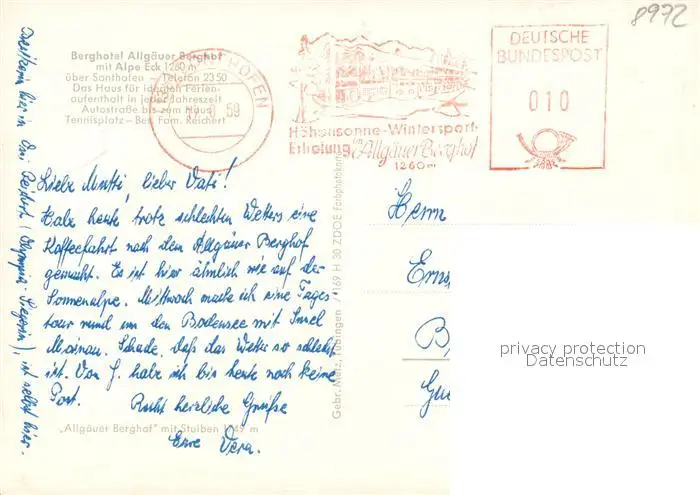 8972
Berghotel Allgäuer Berghof
mit Alpe Eck 1260 m
über Sonthofen – Telefon 2350
Das Haus für idealen Ferien-
aufenthalt in jeder Jahreszeit
Autostraße bis zum Haus
Tennisplatz – Bes. Fam. Reichert
SONTHOFEN
59
Höhensonne-Wintersport-
Erholung im Allgäuer Berghof
1260 m
DEUTSCHE
BUNDESPOST
010
Liebe Mutti, lieber Vati!
Habe heute trotz schlechten Wetters eine
Kaffeefahrt nach dem Allgäuer Berghof
gemacht. Es ist hier ähnlich wie auf der
Sonnenalpe. Mittwoch mache ich eine Tages-
tour rund um den Bodensee mit Insel
Mainau. Schade, daß das Wetter so schlecht
ist. Von J. habe ich bis heute noch keine
Post. Recht herzliche Grüße
Eure Vera.
(Olympia-Siegerin), ist selbst hier.
„Allgäuer Berghof" mit Stuiben 1749 m
Gebr. Metz, Tübingen / 169 H 30 ZDDE Farbphotokarte
Herrn
Erns
B
Gu
privacy protection
Datenschutz